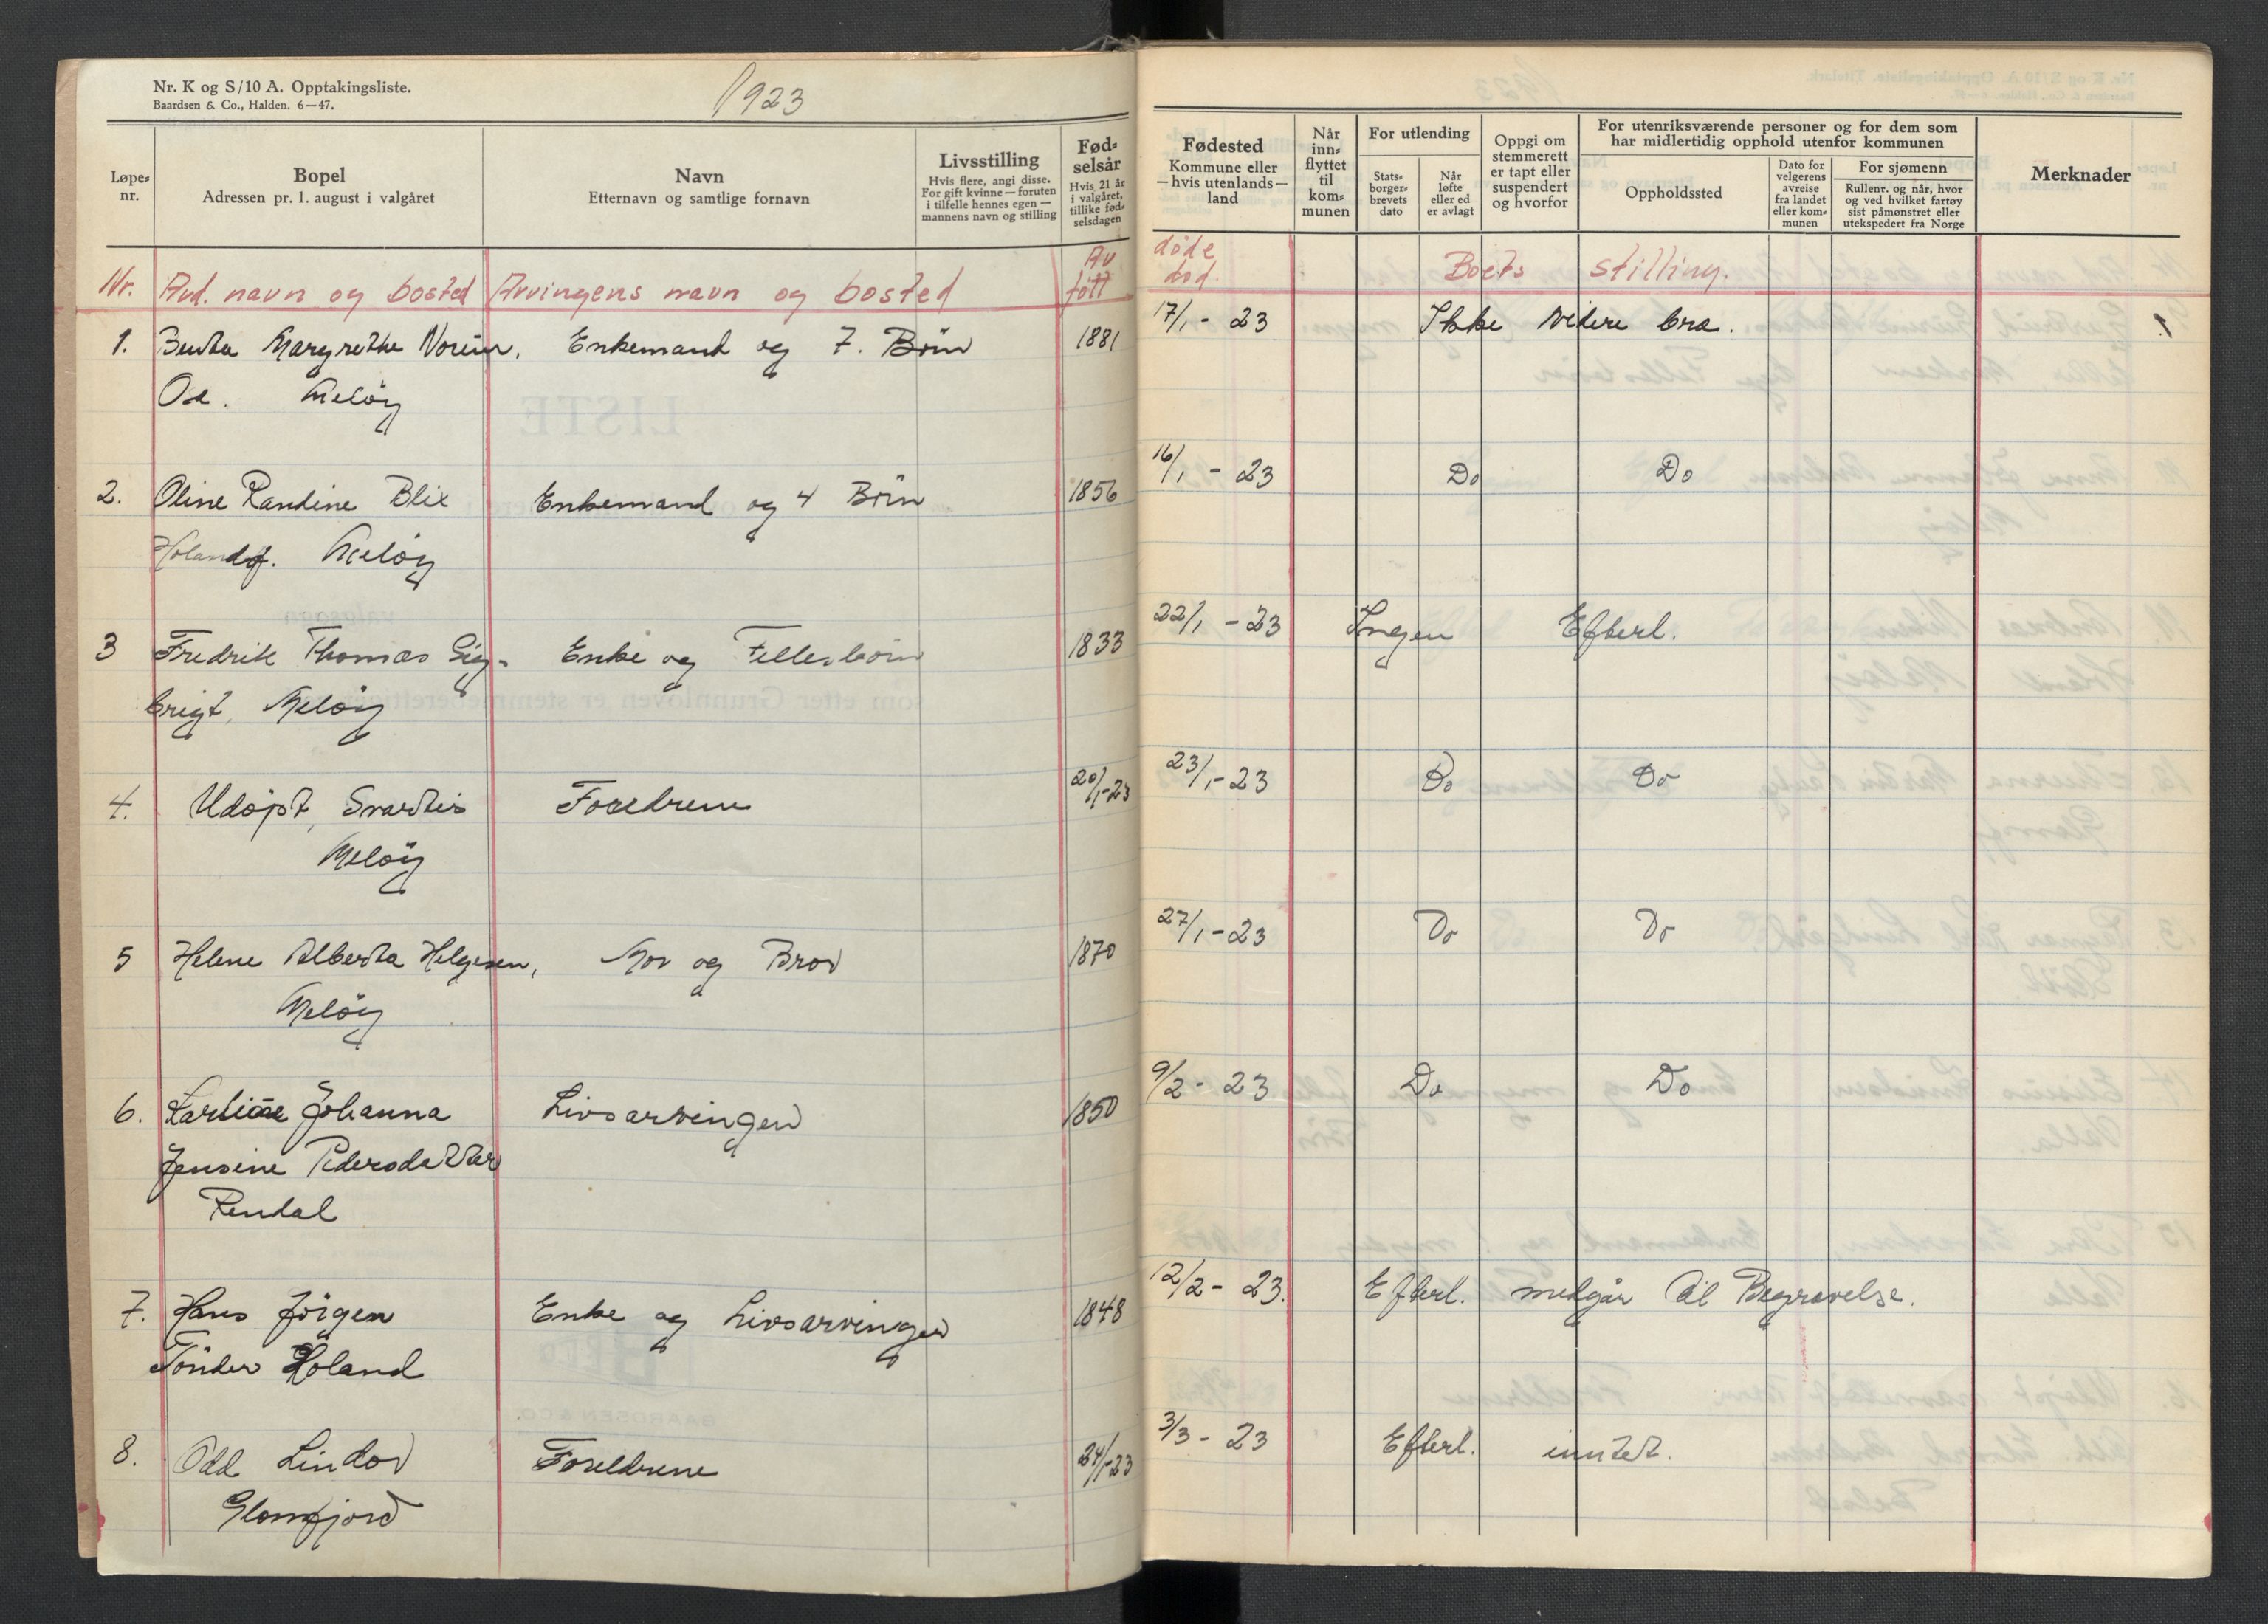 Nr. K og S/10 A. Opptakingsliste.
Baardsen & Co., Halden. 6—47.
1923
Løpe-
nr.
Bopel
Adressen pr. 1. august i valgåret
Navn
Etternavn og samtlige fornavn
Livsstilling
Hvis flere, angi disse.
For gift kvinne — foruten
i tilfelle hennes egen —
mannens navn og stilling
Fød-
selsår
Hvis 21 år
i valgåret,
tillike fød-
selsdagen
Fødested
Kommune eller
— hvis utenlands —
land
Når
inn-
flyttet
til
kom-
munen
For utlending
Stats-
borger-
brevets
dato
Når
løfte
eller ed
er avlagt
Oppgi om
stemmerett
er tapt eller
suspendert
og hvorfor
For utenriksværende personer og for dem som
har midlertidig opphold utenfor kommunen
Oppholdssted
Dato for
velgerens
avreise
fra landet
eller kom-
munen
For sjømenn
Rullenr. og når, hvor
og ved hvilket fartøy
sist påmønstret eller
utekspedert fra Norge
Merknader
Nr. Avd. navn og bosted Arvingens navn og bosted Av født døde død. Boets stilling.
1. Margrethe Enkemand og 7. Börn 1881 17/1 - 23 Ikke videre bra. 1
Meløy
2. Oline Randine Blix Enkemand og 4 Börn 1856 16/1 - 23 Do Do
Holandsf. Meløy
3 Fredrik Thomas Sig- Enke og Fellesbörn 1833 22/1 - 23 Ingen Efterl.
brigt, Meløy
4. Udøpt, Svartis Foreldrene 20/1-23 23/1-23 Do Do
Meløy
5 Helene Alberta Helgesen, Mor og Bror 1870 27/1-23 Do Do
Meløy
6. Johanna Livsarvinger 1850 9/2 - 23 Do Do
Jensine Pedersdatter
Rendal
7. Hans Jörgen Enke og Livsarvinger 1848 12/2 - 23. Efterl. medgår til Begravelse.
Tönder Holand
8. Odd Lindor Foreldrene 24/1-23 3/3 - 23 Efterl. inntet.
Glomfjord